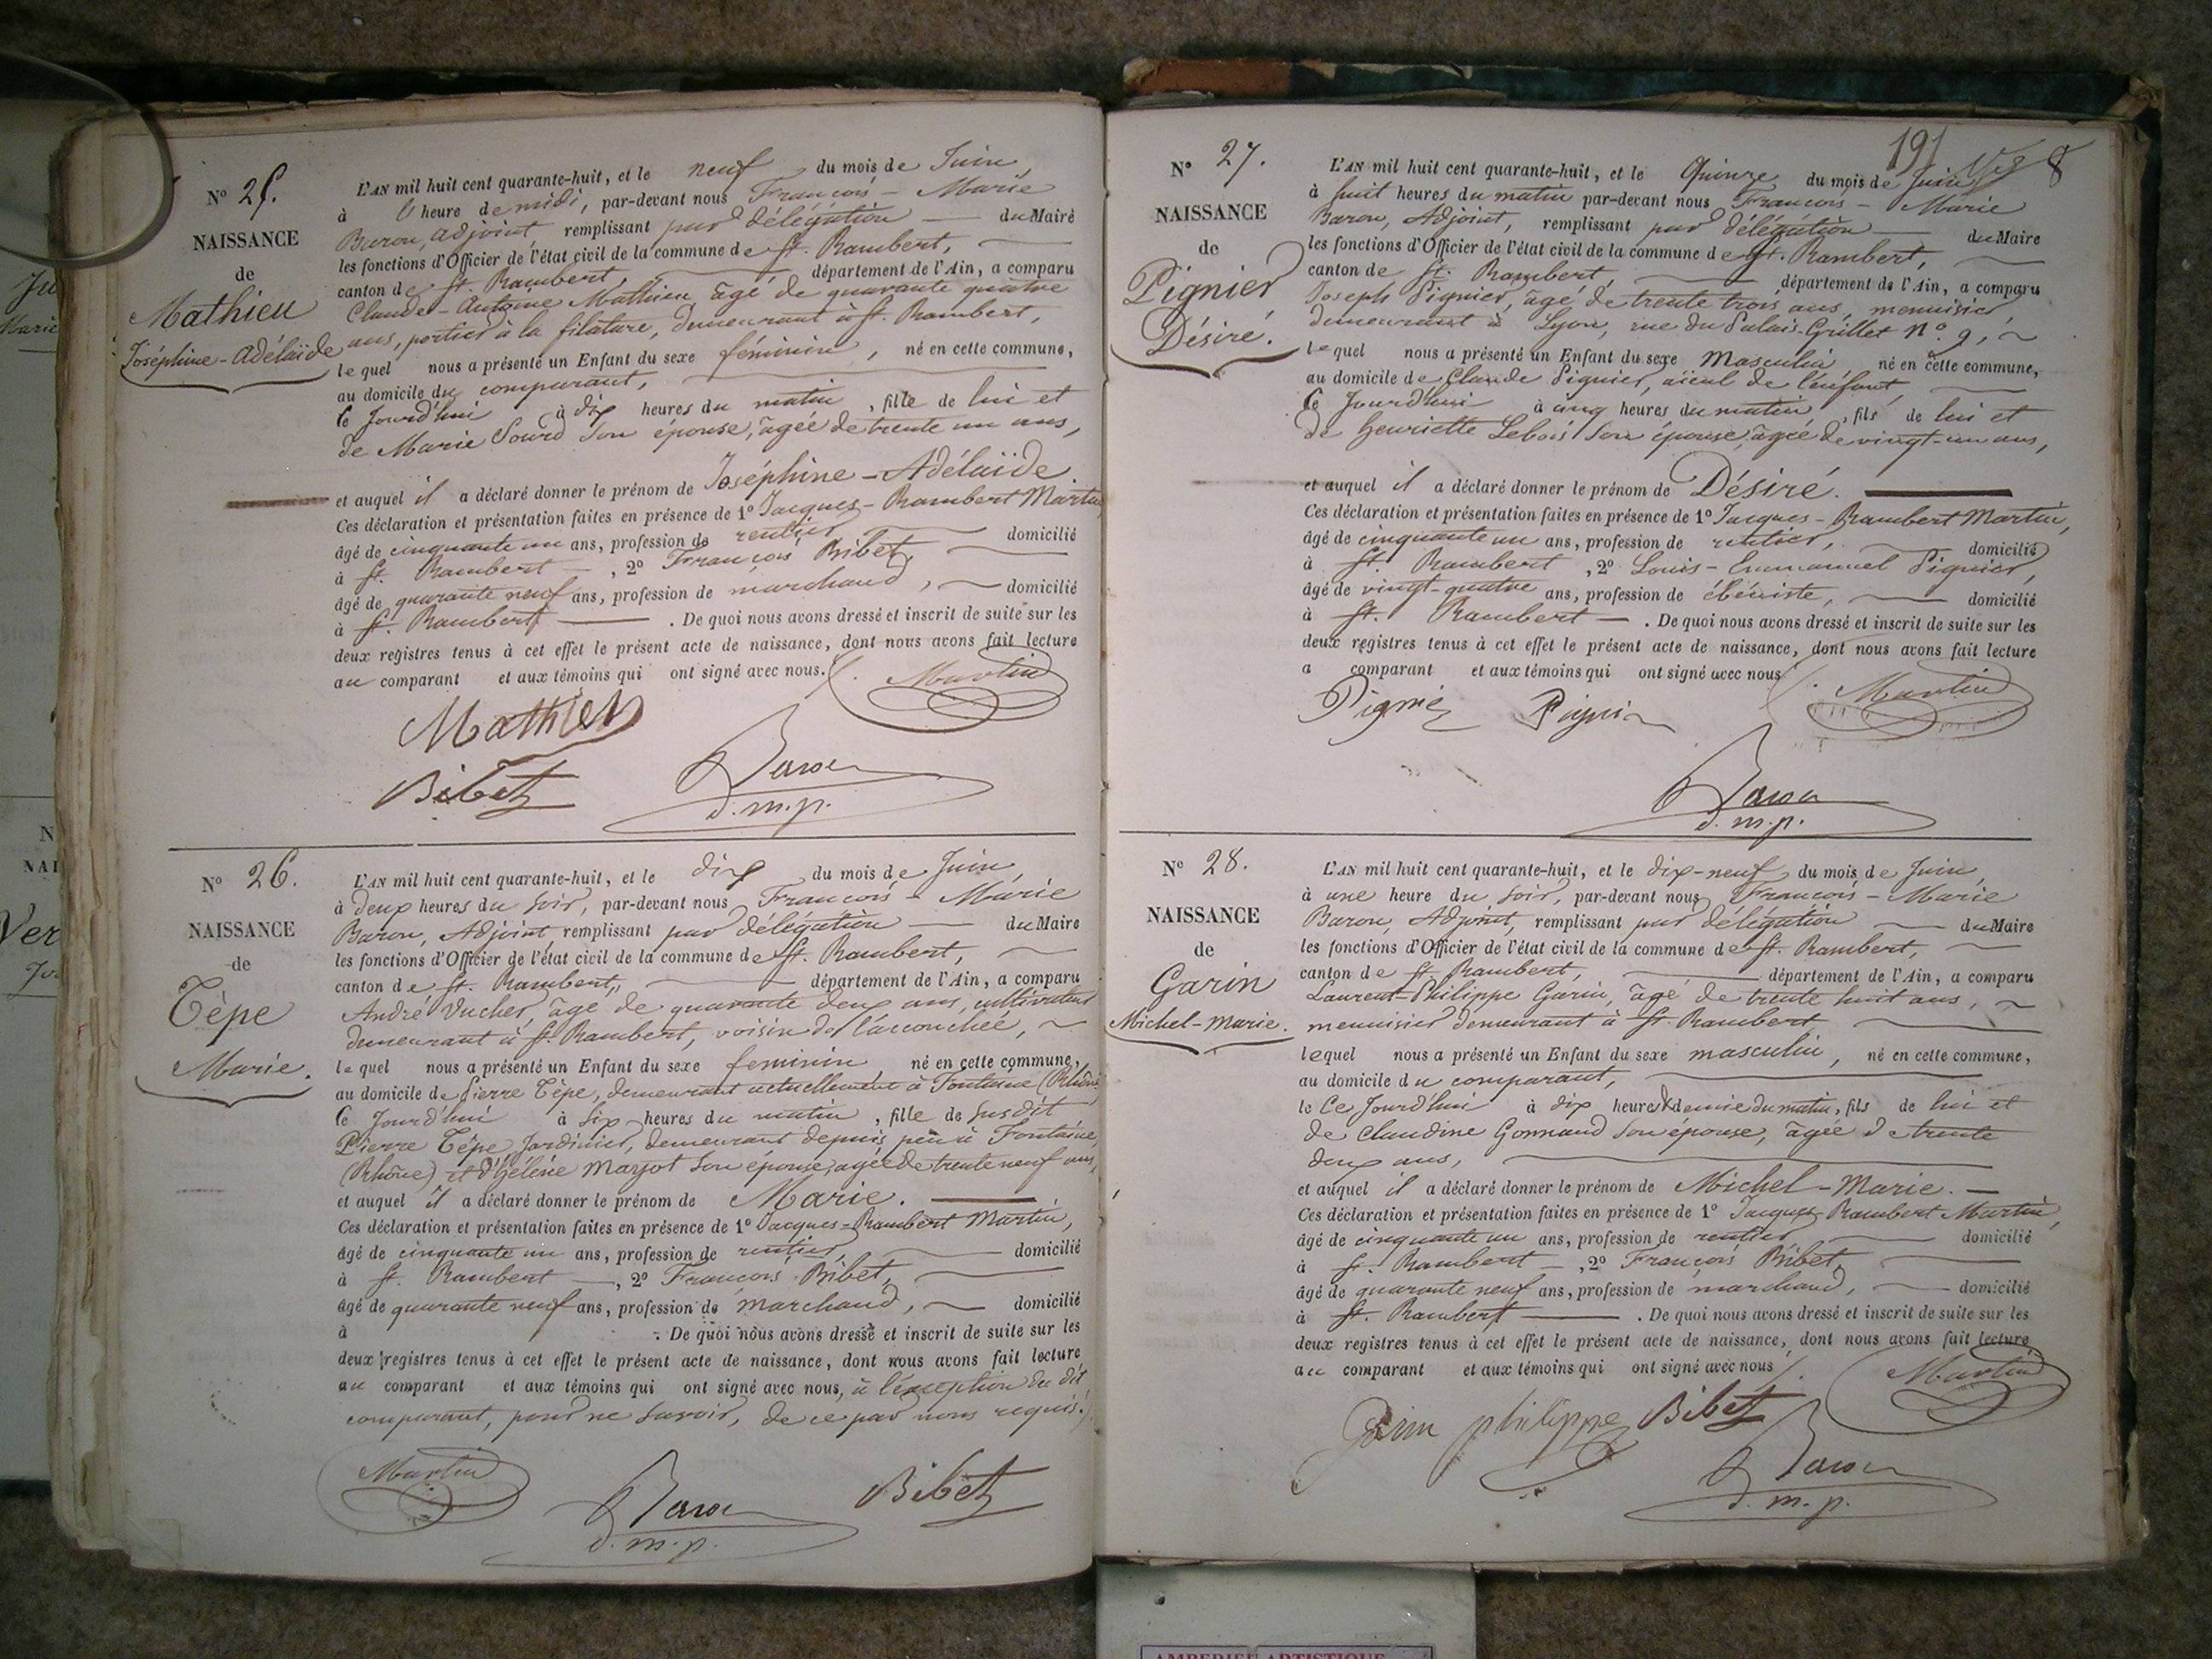 N° 25.
NAISSANCE
de
Mathieu
Joséphine-Adélaïde
L'AN mil huit cent quarante-huit, et le neuf du mois de Juin,
à l'heure de midi, par-devant nous François-Marie
Baron, adjoint, remplissant par délégation du Maire
les fonctions d'Officier de l'état civil de la commune de St. Rambert,
canton de St. Rambert, département de l'Ain, a comparu
Claude-Antoine Mathieu, âgé de quarante quatre
ans, portier à la filature, demeurant à St. Rambert,
lequel nous a présenté un Enfant du sexe féminin, né en cette commune,
au domicile du comparant,
Ce Jourd'hui à dix heures du matin, fille de lui et
de Marie Sourd son épouse, âgée de trente un ans,
et auquel il a déclaré donner le prénom de Joséphine-Adélaïde
Ces déclaration et présentation faites en présence de 1° Jacques-Rambert Martin
âgé de cinquante un ans, profession de rentier domicilié
à St. Rambert, 2° François Bibet,
âgé de quarante neuf ans, profession de marchand, domicilié
à St. Rambert. De quoi nous avons dressé et inscrit de suite sur les
deux registres tenus à cet effet le présent acte de naissance, dont nous avons fait lecture
au comparant et aux témoins qui ont signé avec nous.
Martin
Mathieu
Bibet
Baron
d. m. p.
N° 26.
NAISSANCE
de
Tèpe
Marie.
L'AN mil huit cent quarante-huit, et le dix du mois de Juin,
à deux heures du soir, par-devant nous François-Marie
Baron, Adjoint, remplissant par délégation du Maire
les fonctions d'Officier de l'état civil de la commune de St. Rambert,
canton de St. Rambert, département de l'Ain, a comparu
André Vucher, âgé de quarante deux ans, cultivateur
demeurant à St. Rambert, voisin de l'accouchée,
lequel nous a présenté un Enfant du sexe feminin né en cette commune,
au domicile de Pierre Tèpe, demeurant actuellement à Fontaine (Rhône)
Ce Jourd'hui à six heures du matin, fille de susdit
Pierre Tèpe, Jardinier, demeurant depuis peu à Fontaine,
(Rhône) et d'Hélène Marjot son épouse, agée de trente neuf ans,
et auquel il a déclaré donner le prénom de Marie.
Ces déclaration et présentation faites en présence de 1° Jacques-Rambert Martin,
âgé de cinquante un ans, profession de rentier, domicilié
à St. Rambert, 2° François Bibet,
âgé de quarante neuf ans, profession de marchand, domicilié
à . De quoi nous avons dressé et inscrit de suite sur les
deux registres tenus à cet effet le présent acte de naissance, dont nous avons fait lecture
au comparant et aux témoins qui ont signé avec nous, à l'exception du dit
comparant, pour ne savoir, de ce par nous requis.
Martin
Baron
d. m. p.
Bibet
191
8
N° 27.
NAISSANCE
de
Pignier
Désiré.
L'AN mil huit cent quarante-huit, et le Quinze du mois de Juin
à huit heures du matin par-devant nous François-Marie
Baron, Adjoint, remplissant par délégation du Maire
les fonctions d'Officier de l'état civil de la commune de St. Rambert,
canton de St. Rambert, département de l'Ain, a comparu
Joseph Pignier, âgé de trente trois ans, menuisier,
demeurant à Lyon, rue du Palais-Grillet N° 9,
lequel nous a présenté un Enfant du sexe Masculin né en cette commune,
au domicile de Claude Pignier, aïeul de l'enfant,
Ce Jourd'hui à cinq heures du matin, fils de lui et
de Henriette Lebois son épouse, âgée de vingt-un ans,
et auquel il a déclaré donner le prénom de Désiré.
Ces déclaration et présentation faites en présence de 1° Jacques-Rambert Martin,
âgé de cinquante un ans, profession de rentier, domicilié
à St. Rambert, 2° Louis-Emmanuel Pignier,
âgé de vingt-quatre ans, profession de ébéniste, domicilié
à St. Rambert. De quoi nous avons dressé et inscrit de suite sur les
deux registres tenus à cet effet le présent acte de naissance, dont nous avons fait lecture
a comparant et aux témoins qui ont signé avec nous
Martin
Pignier Pignier
Baron
d. m. p.
N° 28.
NAISSANCE
de
Garin
Michel-Marie.
L'AN mil huit cent quarante-huit, et le dix-neuf du mois de Juin,
à une heure du soir, par-devant nous François-Marie
Baron, Adjoint, remplissant par délégation du Maire
les fonctions d'Officier de l'état civil de la commune de St. Rambert,
canton de St. Rambert, département de l'Ain, a comparu
Laurent-Philippe Garin, âgé de trente huit ans,
menuisier demeurant à St. Rambert
lequel nous a présenté un Enfant du sexe masculin, né en cette commune,
au domicile du comparant,
le Ce Jourd'hui à dix heures & demie du matin, fils de lui et
de Claudine Gonnand son épouse, âgée de trente
deux ans,
et auquel il a déclaré donner le prénom de Michel-Marie.
Ces déclaration et présentation faites en présence de 1° Jacques Rambert Martin,
âgé de cinquante un ans, profession de rentier domicilié
à St. Rambert, 2° François Bibet,
âgé de quarante neuf ans, profession de marchand, domicilié
à St. Rambert. De quoi nous avons dressé et inscrit de suite sur les
deux registres tenus à cet effet le présent acte de naissance, dont nous avons fait lecture
au comparant et aux témoins qui ont signé avec nous
Martin
philippe Bibet
Baron
d. m. p.
AMBERIEU ARTISTIQUE